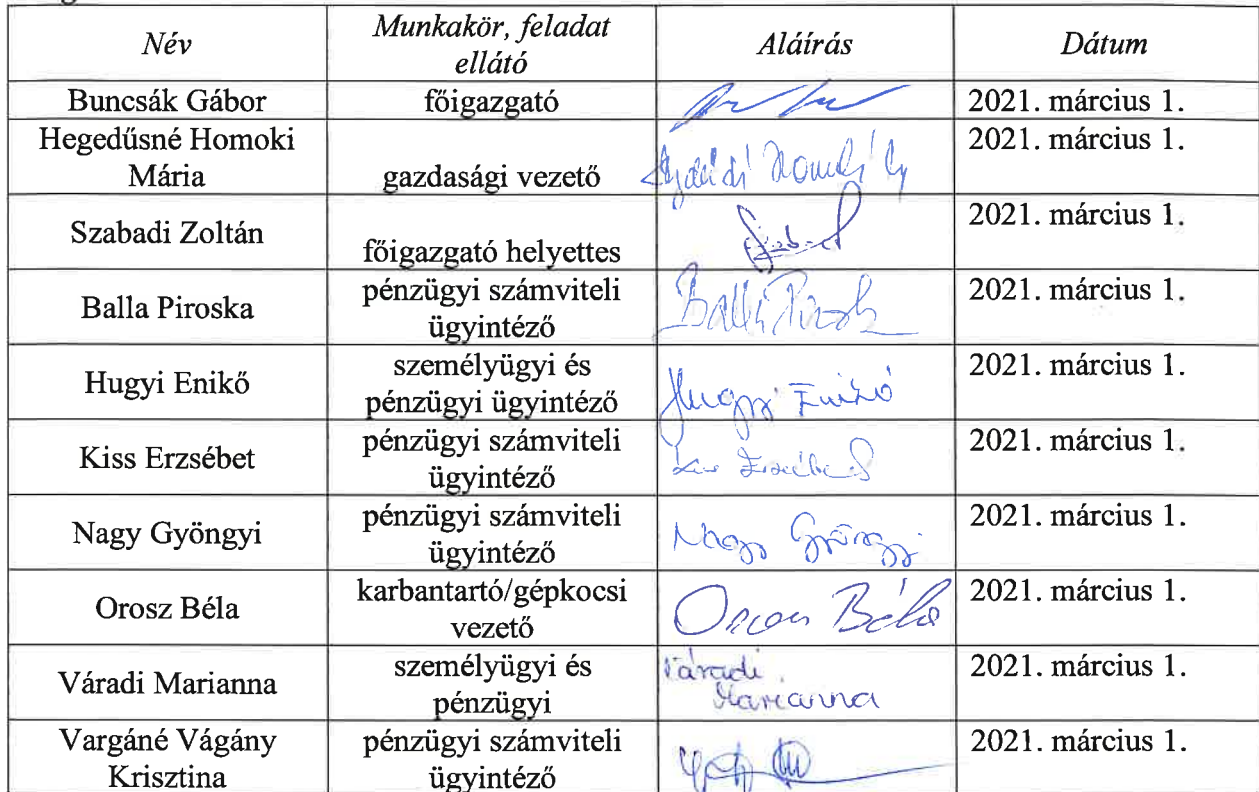 Név
Munkakör, feladat
ellátó
Aláírás
Dátum
Buncsák Gábor
főigazgató
2021. március 1.
Hegedűsné Homoki
Mária
gazdasági vezető
2021. március 1.
Szabadi Zoltán
főigazgató helyettes
2021. március 1.
Balla Piroska
pénzügyi számviteli
ügyintéző
Balla Piroska
2021. március 1.
Hugyi Enikő
személyügyi és
pénzügyi ügyintéző
Hugyi Enikő
2021. március 1.
Kiss Erzsébet
pénzügyi számviteli
ügyintéző
Kiss Erzsébet
2021. március 1.
Nagy Gyöngyi
pénzügyi számviteli
ügyintéző
Nagy Gyöngyi
2021. március 1.
Orosz Béla
karbantartó/gépkocsi
vezető
Orosz Béla
2021. március 1.
Váradi Marianna
személyügyi és
pénzügyi
Váradi
Marianna
2021. március 1.
Vargáné Vágány
Krisztina
pénzügyi számviteli
ügyintéző
2021. március 1.